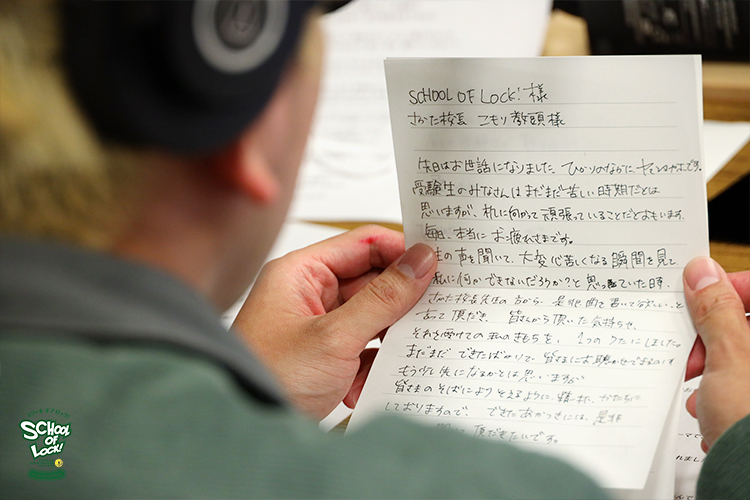 SCHOOL OF LOCK! 様
さかた校長 こもり教頭様
先日はお世話になりました、ひかりのなかに
受験生のみなさんはまだまだ苦しい時期だとは
思いますが、机に向かって頑張っていることだとおもいます。
毎日、本当にお疲れさまです。
生の声を聞いて、大変心苦しくなる瞬間を見て
私に何かできないだろうか?と思っていた時、
さかた校長先生の方から、是非曲を書いて欲しい。と
あって頂だき、皆さんから頂いた気持ちや、
それを受けての私のきもちを、1つのうたにしました。
まだまだできたばかりで、皆さまにお聴かせできるのは
もう少し先になるかとは思いますが
皆さまのそばによりそえるように、
しておりますので、できたあかつきには、是非
頂だきたいです。
SCHOOL OF LOCK!